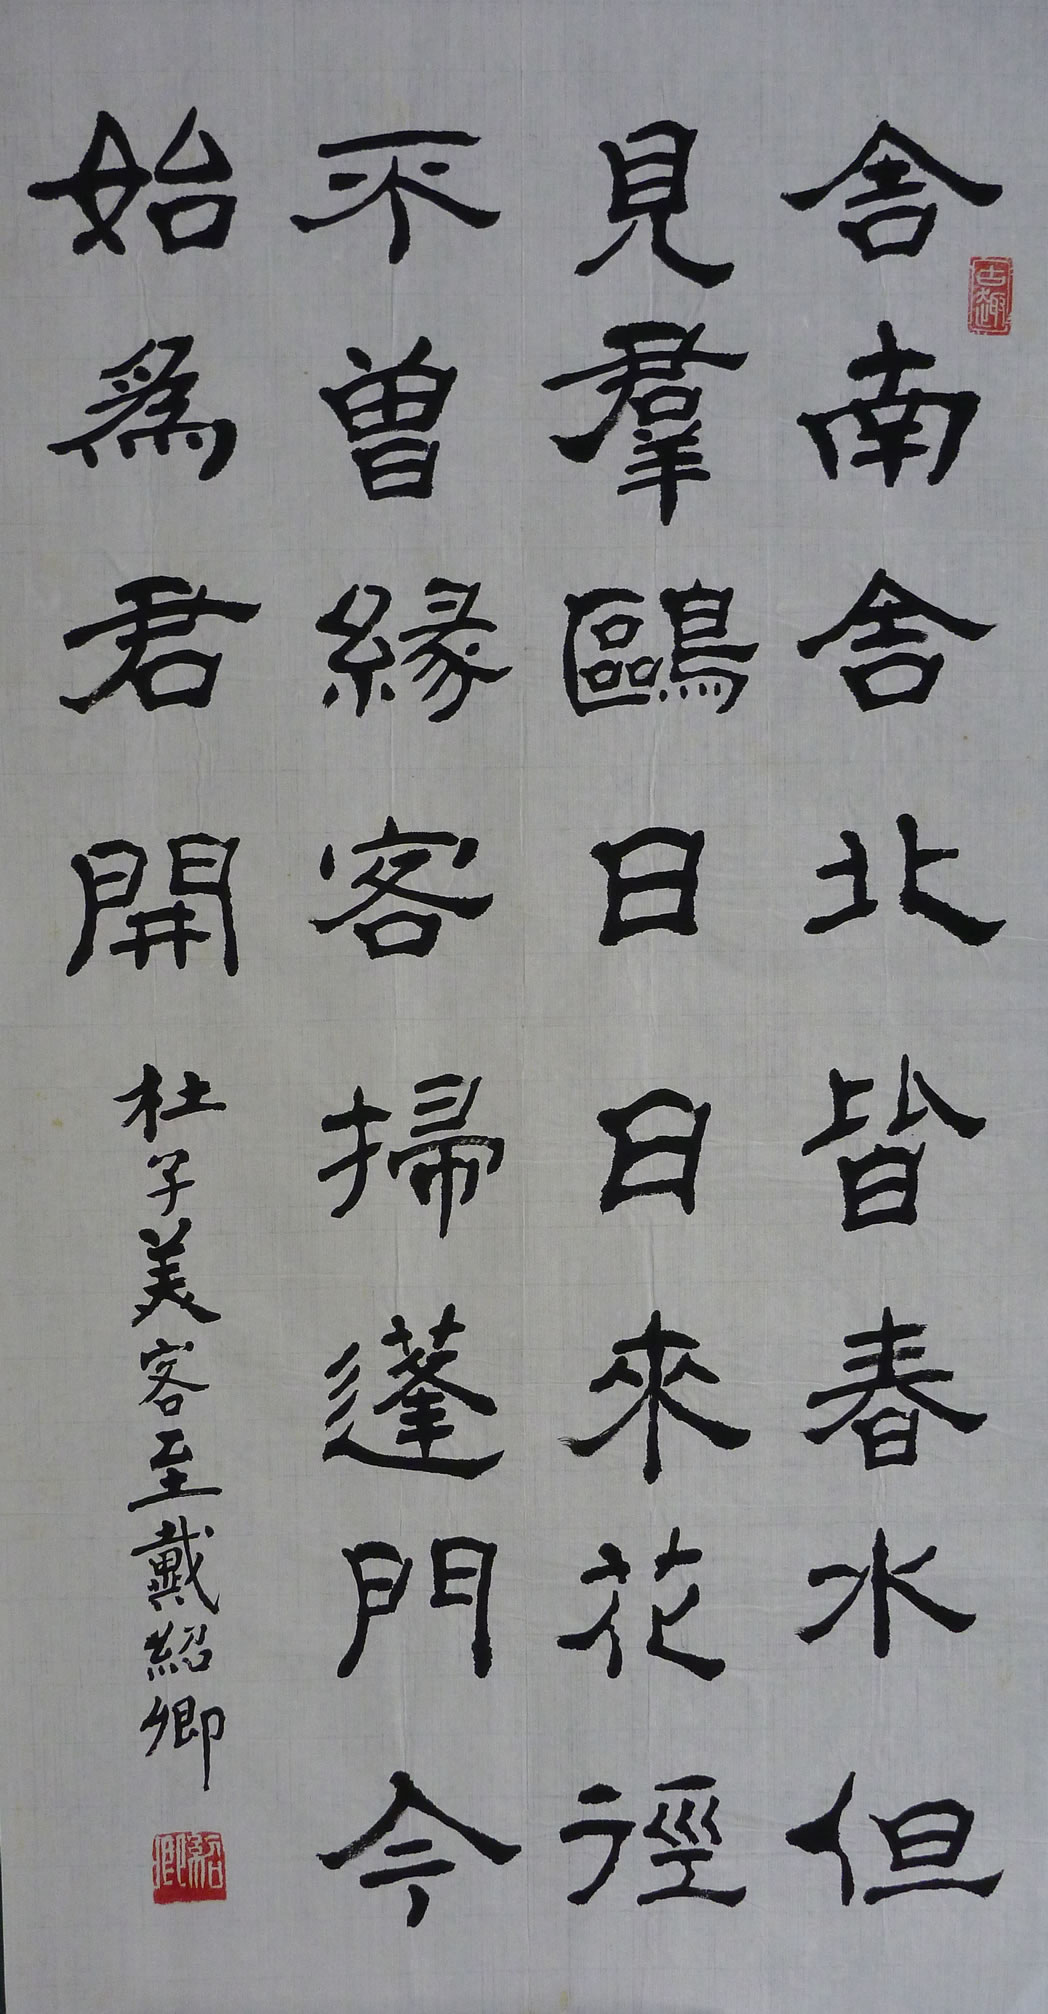 舍南舍北皆春水但
見羣鷗日日來花徑
不曾緣客掃蓬門今
始為君開
杜子美客至戴紹卿
古趣
紹卿